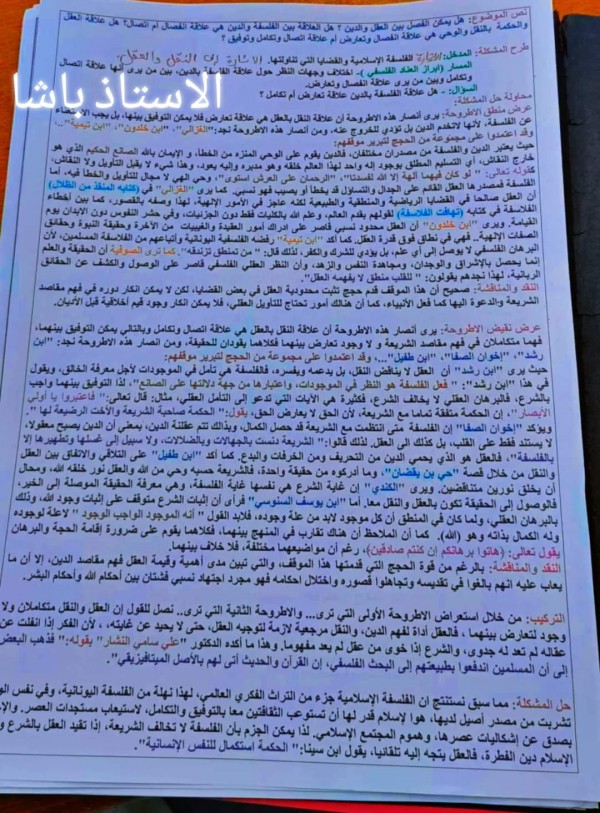 نص الموضوع: هل يمكن الفصل بين العقل والدين ؟ هل العلاقة بين الفلسفة والدين هي علاقة انفصال ام اتصال؟ هل علاقة العقل
والحكمة بالنقل والوحي هي علاقة انفصال وتعارض ام علاقة اتصال وتكامل وتوفيق ؟
طرح المشكلة:
المدخل: الفلسفة الإسلامية والقضايا التي تناولتها. الإشارة إلى النقل والعقل.
المسار (ابراز العناد الفلسفي ).- اختلاف وجهات النظر حول علاقة الفلسفة بالدين، بين من يرى أنها علاقة اتصال
وتكامل وبين من يرى علاقة انفصال وتعارض.
الاستاذ باشا
السؤال: - هل علاقة الفلسفة بالدين علاقة تعارض أم تكامل ؟
محاولة حل المشكلة:
عرض منطق الاطروحة: يرى أنصار هذه الاطروحة أن علاقة النقل بالعقل هي علاقة تعارض فلا يمكن التوفيق بينها، بل يجب الاستغناء
عن الفلسفة، لأنها لاتخدم الدين بل تؤدي للخروج عنه، ومن أنصار هذه الاطروحة نجد:"الغزالي"، "ابن خلدون"، "ابن تيمية"...،
وقد اعتمدوا على مجموعة من الحجج لتبرير موقفهم:
حيث يعتبر الدين والفلسفة من مصدران مختلفان، فالدين يقوم على الوحي المنزه من الخطأ، و الإيمان بالله الصانع الحكيم الذي هو
خارج النقاش، أي التسليم المطلق بوجود إله واحد لهذا العالم خلقه وهو مدبره وإليه يعود، وهذا شيء لا يقبل التأويل ولا النقاش،
كقوله تعالى:" لو كان فيهما آلهة إلا الله لفسدتا"، "الرحمان على العرش استوى"، وحي الهي لا مجال للتأويل والخطأ فيه، أما
الفلسفة فمصدرها العقل القائم على الجدال والتساؤل قد يخطأ أو يصيب فهو نسبي. كما يرى "الغزالي" في (كتابه المنقذ من الظلال)
أن العقل صالحا في القضايا الرياضية والمنطقية والطبيعية لكنه عاجز في الأمور الإلهية، لهذا وصفه بالقصور، كما بين أخطاء
الفلاسفة في كتابه (تهافت الفلاسفة) لقولهم بقدم العالم، وعلم الله بالكليات فقط دون الجزئيات، وفي حشر النفوس دون الابدان يوم
القيامة ويرى "ابن خلدون" أن العقل محدود نسبي قاصر على ادراك أمور العقيدة والغيبيات من الآخرة وحقيقة النبوة وحقائق
الصفات الإلهية. فهي في نطاق فوق قدرة العقل. كما أكد "ابن تيمية" رفضه الفلسفة اليونانية وأتباعهم من الفلاسفة المسلمين، لأن
البرهان الفلسفي لا يوصل إلى أي علم، بل يودي للشرك والكفر، لذلك قال: " من تمنطق تزندقه". كما ترى الصوفية أن الحقيقة والعلم
إنما يحصل بالإشراق والوجدان، ومجاهدة النفس والزهد، وأن النظر العقلي الفلسفي قاصر على الوصول والكشف عن الحقائق
الربانية. لهذا نجدهم يقولون: " للقلب منطق لا يفهمه العقل".
النقد والمناقشة: صحيح أن هذا الموقف قدم حجج تثبت محدودية العقل في بعض القضايا، لكن لا يمكن انكار دوره في فهم مقاصد
الشريعة والدعوة اليها كما فعل الأنبياء، كما أن هنالك أمور تحتاج للتأويل العقلي، فلا يمكن انكار وجود قيم أخلاقية قبل الأديان.
عرض نقيض الاطروحة: يرى أنصار هذه الاطروحة أن علاقة النقل بالعقل هي علاقة اتصال وتكامل وبالتالي يمكن التوفيق بينهما،
فهما متكاملان في فهم مقاصد الشريعة و لا وجود تعارض بينهما فكلاهما يقودان للحقيقة، ومن أنصار هذه الاطروحة نجد: "ابن
رشد"، "اخوان الصفا"، "ابن طفيل" ...، وقد اعتمدوا على مجموعة من الحجج لتبرير موقفهم:
حيث يرى "ابن رشد" أن العقل لا يناقض النقل، بل يدعمه ويفسره، فالفلسفة هي تأمل في الموجودات لأجل معرفة الخالق، ويقول
في هذا "ابن رشد": " فعل الفلسفة هو النظر في الموجودات، واعتبارها من جهة دلالتها على الصانع"، لذا التوفيق بينهما واجب
بالشرع، فالبرهان العقلي لا يخالف الشرع، فكثيرة هي الآيات التي تدعو إلى التأمل العقلي، مثال: قال تعالى:" فاعتبروا يا أولي
الأبصار"، إن الحكمة متفقة تماما مع الشريعة، لأن الحق لا يعارض الحق، يقول:" الحكمة صاحبة الشريعة والأخت الرضيعة لها ".
ويؤكد "اخوان الصفا" إن الفلسفة متى انتظمت مع الشريعة قد حصل الكمال، وبذلك تتم عقلنة الدين، بمعنى أن الدين يصبح معقولا،
لا يستند فقط على القلب، بل كذلك الى العقل. لذلك قالوا:" الشريعة دنست بالجهالات وبالضلالات، ولا سبيل إلى غسلها وتطهيرها إلا
بالفلسفة"، فالعقل هو الذي يحمي الدين من التحريف ومن الخرفات والبدع. كما أكد "ابن طفيل" على التلاقي والاتفاق بين العقل
والنقل من خلال قصة "حي بن يقضان"، وما ادركوه من حقيقة واحدة، فالشريعة حسبه وحي من الله والعقل نور خلقه الله، ومحال
أن يخلق نورين متناقضين. ويرى "الكندي" إن غاية الشرع هي نفسها غاية الفلسفة، وهي معرفة الحقيقة الموصلة إلى الخير،
فالوصول إلى الحقيقة تكون بالعقل والنقل معا. أما "ابن يوسف السنوسي" فرأى أن إثبات الشرع متوقف على إثبات وجود الله، وذلك
بالبرهان العقلي، ولما كان في المنطق أن كل موجود لابد من علة وجوده، فلابد القول " أنه الموجود الواجب الوجود " لاعلة لوجوده
وله الكمال بذاته وهو (الله). كما أن الملاحظ أن هناك تقارب في المنهج بينهما، فكلاهما يقوم على ضرورة إقامة الحجة والبرهان
يقول تعالى: (هاتوا برهانكم إن كنتم صادقين)، رغم أن مواضيعهما مختلفة، فلا خلاف بينهما.
النقد والمناقشة: بالرغم من قوة الحجج التي قدمتها هذا الموقف، والتي تبين مدى أهمية وقيمة العقل فهم مقاصد الدين، إلا أن ما
يعاب عليه انهم بالغوا في تقديسه وتجاهلوا قصوره واختلال احكامه فهو مجرد اجتهاد نسبي فشتان بين أحكام الله وأحكام البشر.
التركيب: من خلال استعراض الاطروحة الأولى التي ترى... والاطروحة الثانية التي ترى.. نصل للقول إن العقل والنقل متكاملان ولا
وجود لتعارض بينهما ، فالعقل أداة لفهم الدين، والنقل مرجعية لازمة لتوجيه العقل، حتى لا يحيد عن غايته، ، لأن الفكر إذا انفلت عن
عقاله لم تعد له جدوى، والشرع إذا خوى من عقل لم يعد مفهوما. وهذا ما أكده الدكتور "علي سامي النشار" بقوله:" فذهب البعض
إلى أن المسلمين اندفعوا بطبيعتهم إلى البحث الفلسفي، إن القرآن والحديث أتى لهم بالأصل الميتافيزيقي".
حل المشكلة: مما سبق نستنتج ان الفلسفة الإسلامية جزء من التراث الفكري العالمي، لهذا نهلة من الفلسفة اليونانية، وفي نفس
تشربت من مصدر أصيل لديها، هوا لإسلام قدر لها أن تستوعب الثقافتين معا بالتوفيق والتكامل، لاستيعاب مستجدات العصر.
بصدق عن إشكاليات عصرها، وهموم المجتمع الإسلامي. لذا يمكن الجزم بأن الفلسفة لا تخالف الشريعة، إذا تقيد العقل بالشرع و
الإسلام دين الفطرة، فالعقل يتجه إليه تلقائيا، يقول ابن سينا:" الحكمة استكمال للنفس الإنسانية".